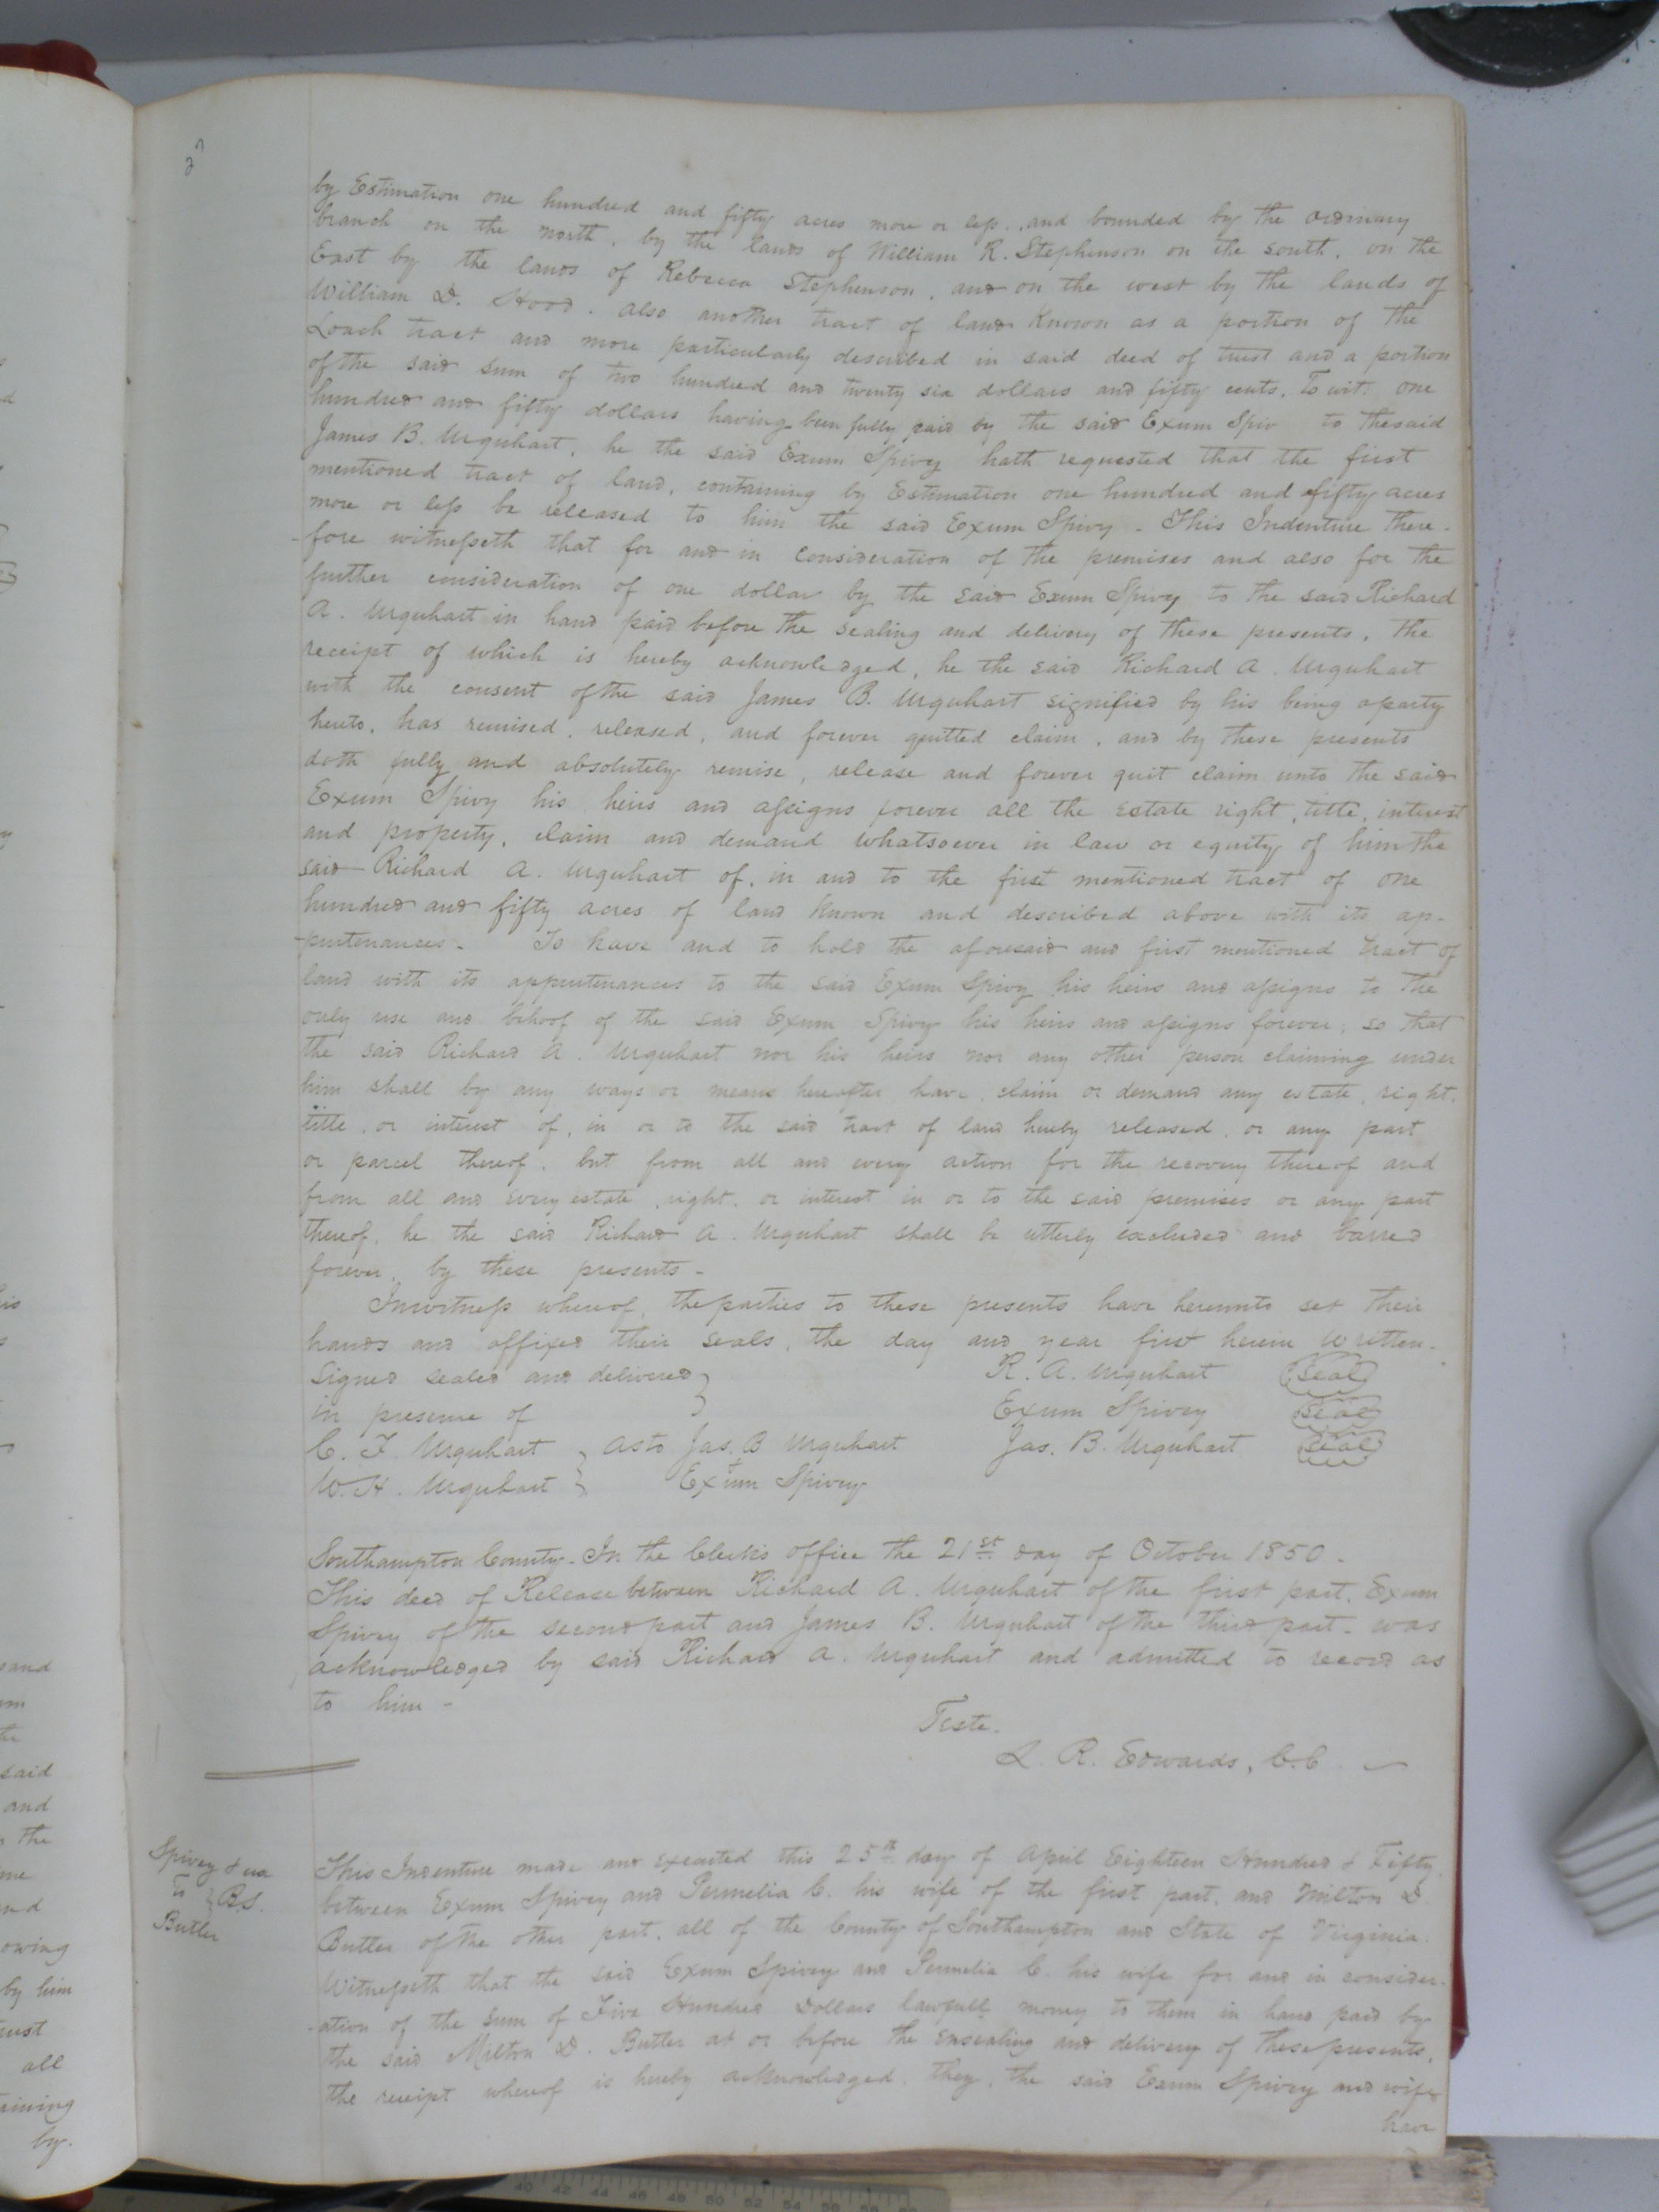 by Estimation one hundred and fifty acres more or less, and bounded by the ordinary
branch on the north, by the lands of William R. Stephenson on the south, on the
East by the lands of Rebecca Stephenson, and on the west by the lands of
William D. Hood. also another tract of land Known as a portion of the
Loach tract and more particularly described in said deed of trust and a portion
of the said sum of two hundred and twenty six dollars and fifty cents, To wit: one
hundred and fifty dollars having been fully paid by the said Exum Spiv to the said
James B. Urquhart, he the said Exum Spivy hath requested that the first
mentioned tract of land, containing by Estimation one hundred and fifty acres
more or less be released to him the said Exum Spivy - This Indenture there-
-fore witnesseth that for and in consideration of the premises and also for the
further consideration of one dollar by the said Exum Spivy to the said Richard
A. Urquhart in hand paid before the sealing and delivery of these presents, the
receipt of which is hereby acknowledged, he the said Richard A. Urquhart
with the consent of the said James B. Urquhart signified by his being a party
hereto, has remised, released, and forever quitted claim, and by these presents
doth fully and absolutely remise, release and forever quit claim unto the said
Exum Spivy his heirs and assigns forever all the estate right, title, interest
and property, claim and demand whatsoever in law or equity of him the
said Richard A. Urquhart of, in and to the first mentioned tract of one
hundred and fifty acres of land known and described above with its ap-
-purtenances - To have and to hold the aforesaid and first mentioned tract of
land with its appurtenances to the said Exum Spivy his heirs and assigns to the
only use and behoof of the said Exum Spivy his heirs and assigns forever; so that
the said Richard A. Urquhart nor his heirs nor any other person claiming under
him shall by any ways or means hereafter have, claim or demand any estate, right,
title, or interest of, in or to the said tract of land hereby released, or any part
or parcel thereof, but from all and every action for the recovery thereof and
from all and every estate, right, or interest in or to the said premises or any part
thereof, he the said Richard A. Urquhart shall be utterly excluded and barred
forever, by these presents -
In witness whereof, the parties to these presents have hereunto set their
hands and affixed their seals, the day and year first herein written.
Signed sealed and delivered } R. A. Urquhart Seal
in presence of } Exum Spivey Seal
C. F. Urquhart } as to Jas. B Urquhart Jas. B. Urquhart Seal
W. H. Urquhart } + Exum Spivey
Southampton County - In the Clerk's office the 21st day of October 1850 -
This deed of Release between Richard A. Urquhart of the first part, Exum
Spivey of the second part and James B. Urquhart of the third part - was
acknowledged by said Richard A. Urquhart and admitted to record as
to him -
Teste.
L. R. Edwards, C.C
Spivey & ux
to } B.S.
Butler
This Indenture made and executed this 25th day of April Eighteen Hundred & Fifty
between Exum Spivey and Permelia C. his wife of the first part, and Milton D.
Butler of the other part, all of the County of Southampton and State of Virginia.
Witnesseth that the said Exum Spivey and Permelia C. his wife for and in consider-
-ation of the sum of Five Hundred Dollars lawfull money to them in hand paid by
the said Milton D. Butler at or before the ensealing and delivery of these presents,
the receipt whereof is hereby acknowledged, they, the said Exum Spivey and wife
have